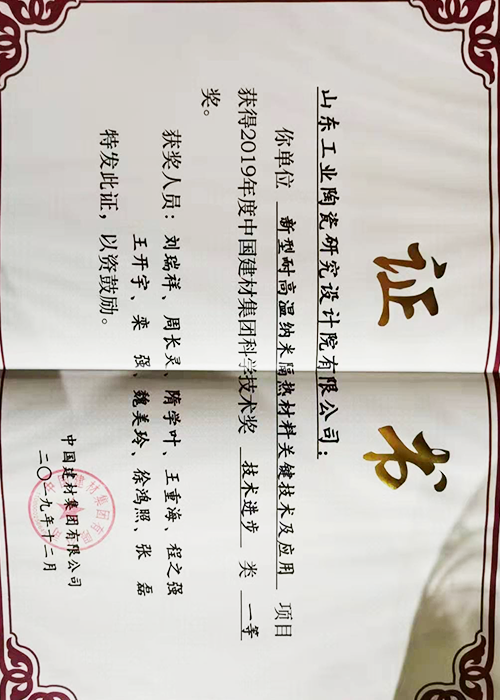 证书
山东工业陶瓷研究设计院有限公司：
你单位 新型耐高温纳米隔热材料关键技术及应用 项目
获得2019年度中国建材集团科学技术奖 技术进步 类 一等
奖。
获奖人员：刘瑞祥、周长灵、隋学叶、王重海、程之强
王开宇、栾强、魏美玲、徐鸿照、张磊
特发此证，以资鼓励。
中国建材集团有限公司
二〇一九年十二月